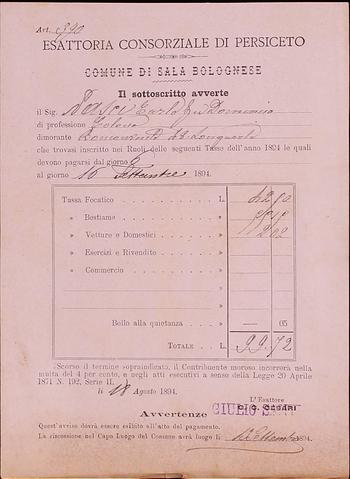 Art.
ESATTORIA CONSORZIALE DI PERSICETO
COMUNE DI SALA BOLOGNESE
Il sottoscritto avverte
il Sig. Carlo fu Domenico
di professione Colono
dimorante
che trovasi inscritto nei Ruoli delle seguenti Tasse dell'anno 1894 le quali
devono pagarsi dal giorno
al giorno 16 Settembre 1894.
Tassa Focatico L.
» Bestiame »
» Vetture e Domestici »
» Esercizi e Rivendite »
» Commercio »
Bollo alla quietanza » — 05
TOTALE L. 72
Scorso il termine sopraindicato, il Contribuente moroso incorrerà nella
multa del 4 per cento, e negli atti esecutivi a senso della Legge 20 Aprile
1871 N. 192, Serie II.
lì 18 Agosto 1894.
L'Esattore
GIULIO
Avvertenze
Quest'avviso dovrà essere esibito all'atto del pagamento.
La riscossione nel Capo Luogo del Comune avrà luogo li 12 Settembre 1894.